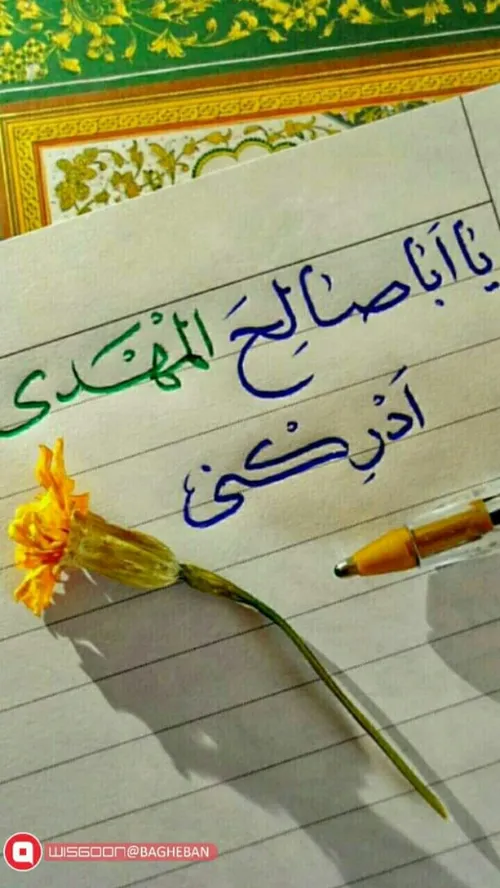 یا اَبا صالِحَ المَهْدی
اَدْرِکْنی
WISGOON@BAGHEBAN